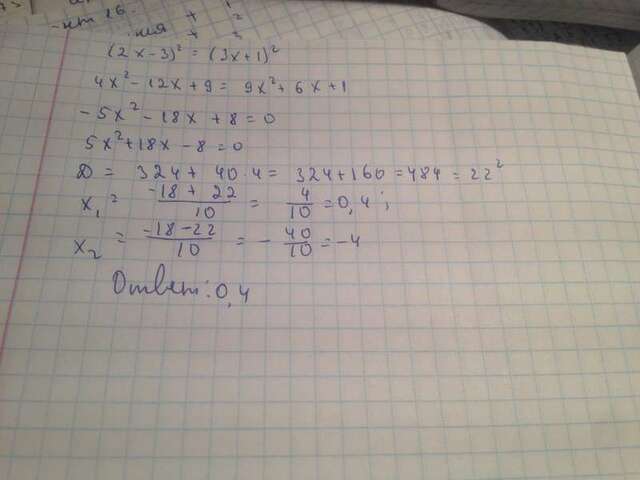 (2x-3)² = (3x+1)²
4x² - 12x + 9 = 9x² + 6x + 1
-5x² - 18x + 8 = 0
5x² + 18x - 8 = 0
D = 324 + 40·4 = 324 + 160 = 484 = 22²
x₁ = (-18 + 22)/10 = 4/10 = 0,4;
x₂ = (-18 - 22)/10 = -40/10 = -4
Ответ: 0,4